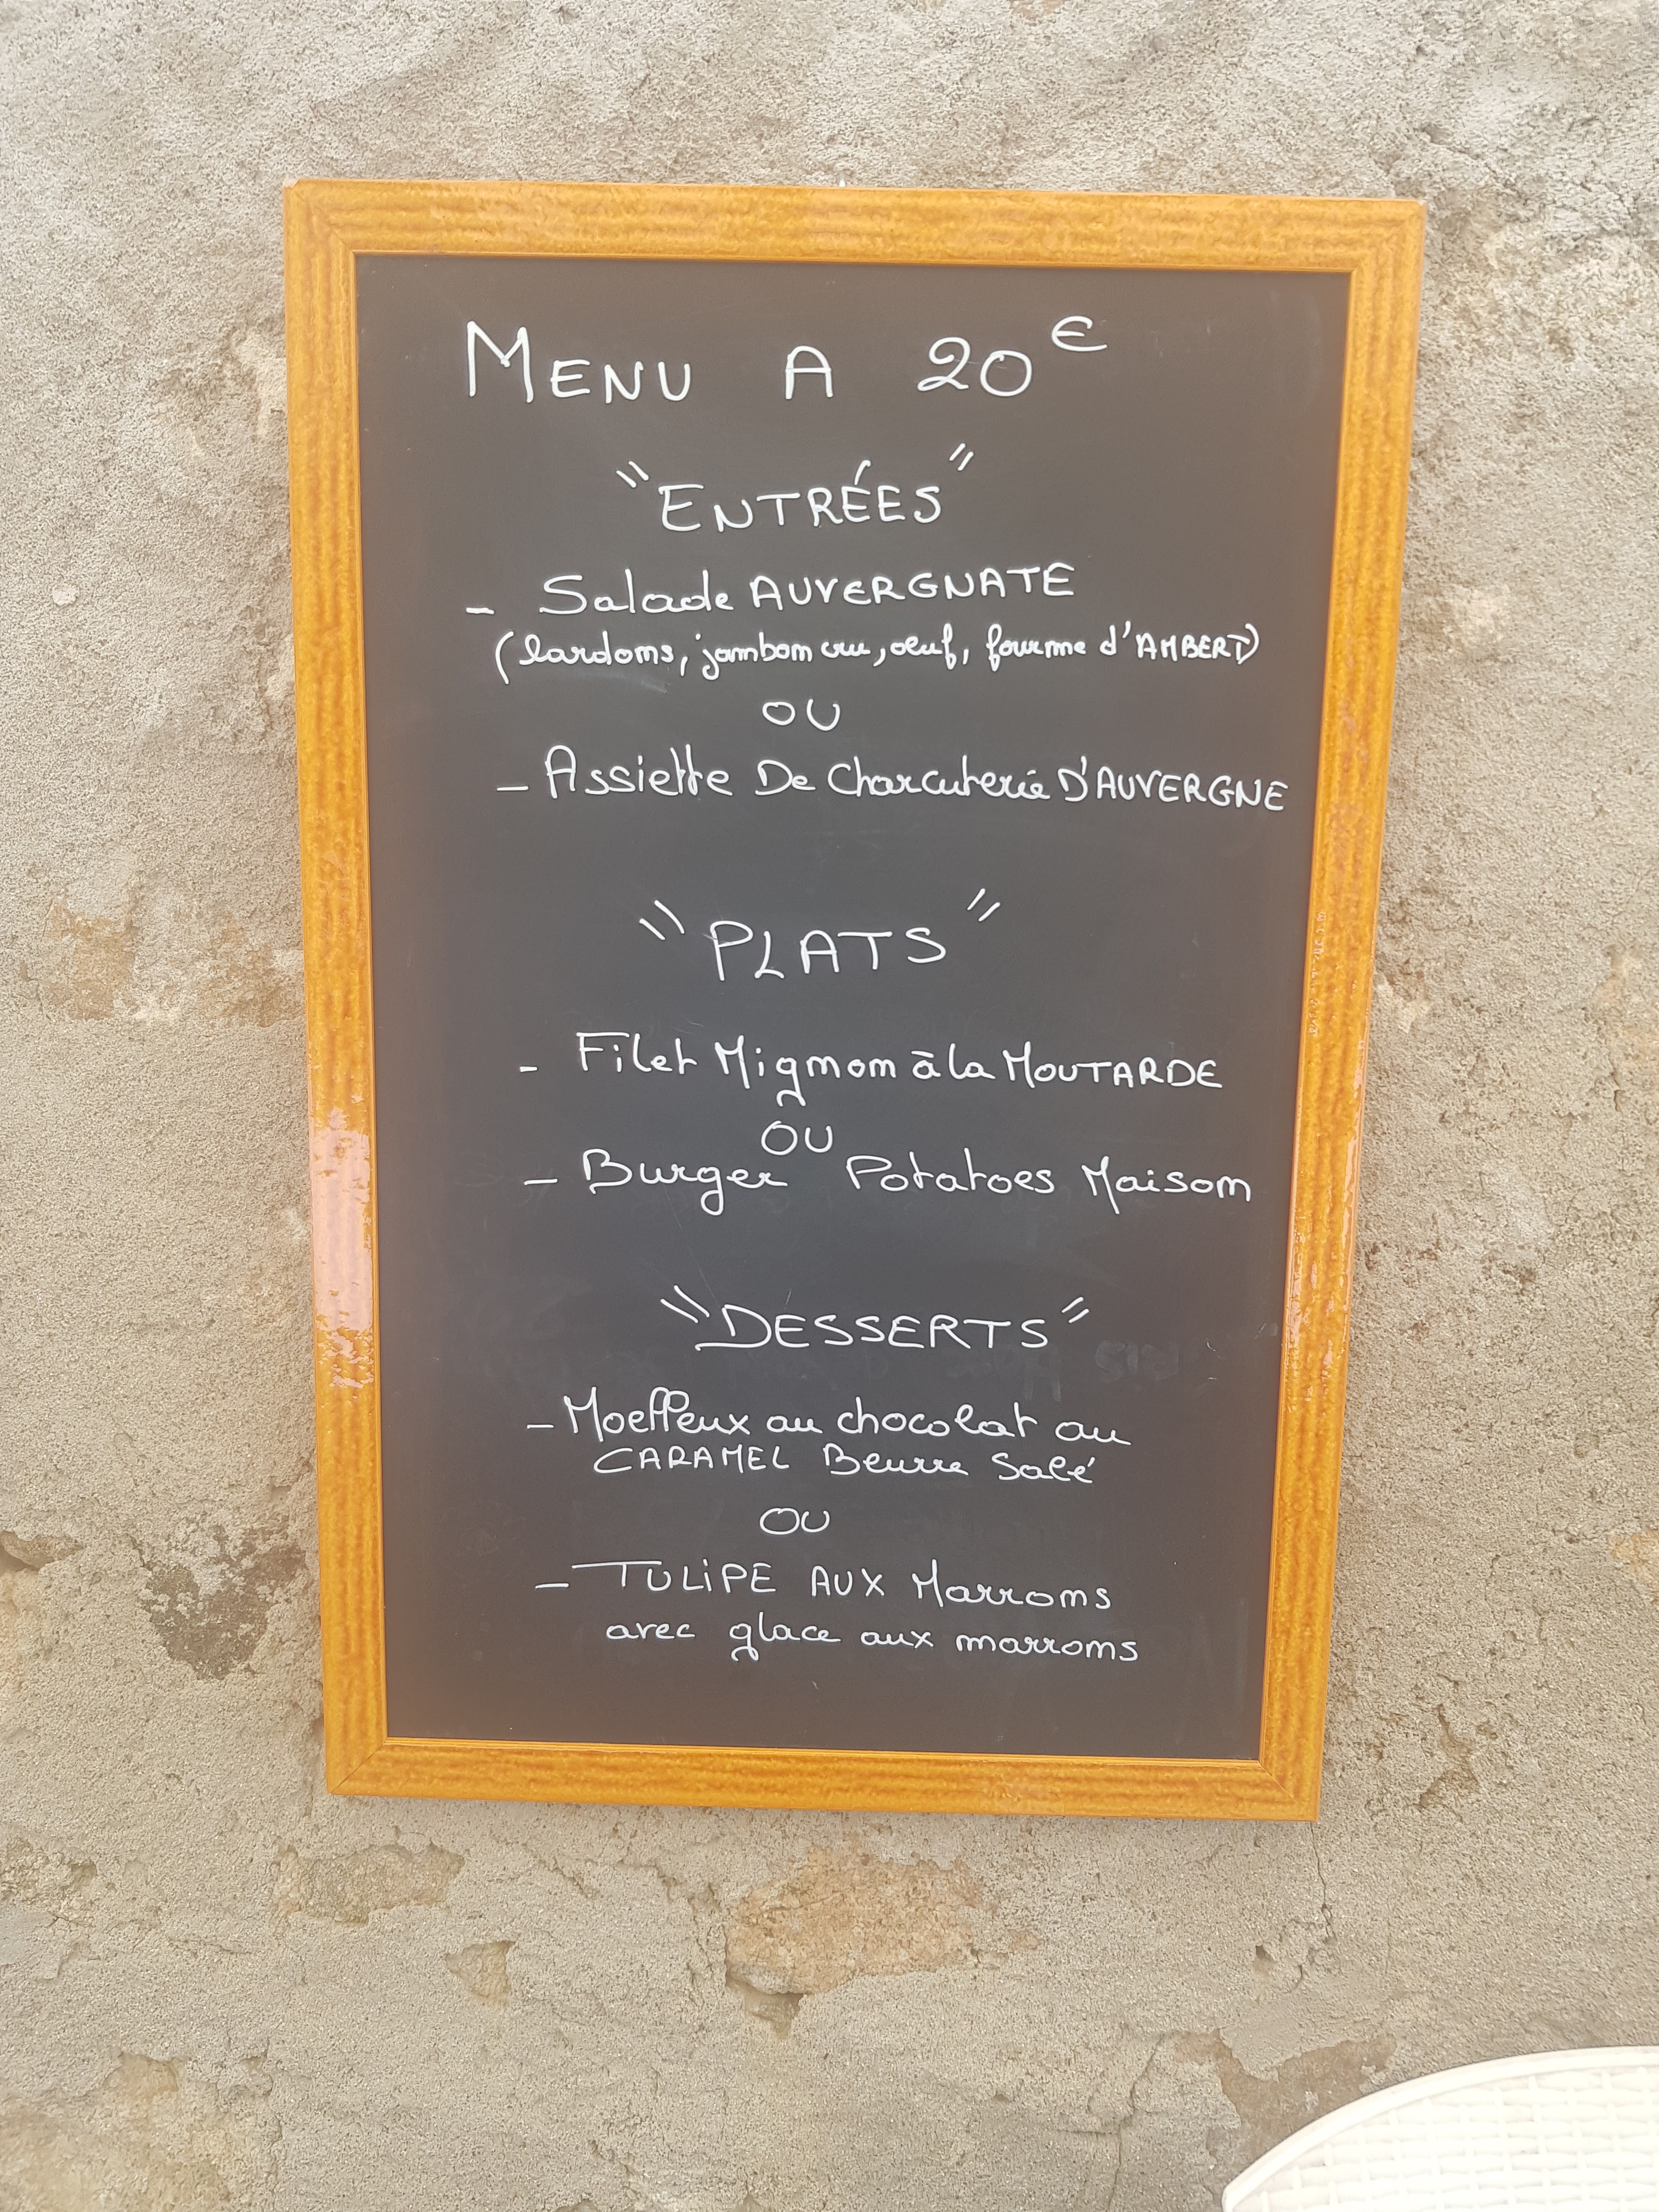 MENU A 20€
"ENTRÉES"
- Salade AUVERGNATE
(lardons, jambon cru, oeuf, fourme d'AMBERT)
OU
- Assiette De Charcuterie D'AUVERGNE
"PLATS"
- Filet Mignon à la MOUTARDE
OU
- Burger Potatoes Maison
"DESSERTS"
- Moelleux au chocolat au
CARAMEL Beurre Salé
OU
- TULIPE AUX Marrons
avec glace aux marrons